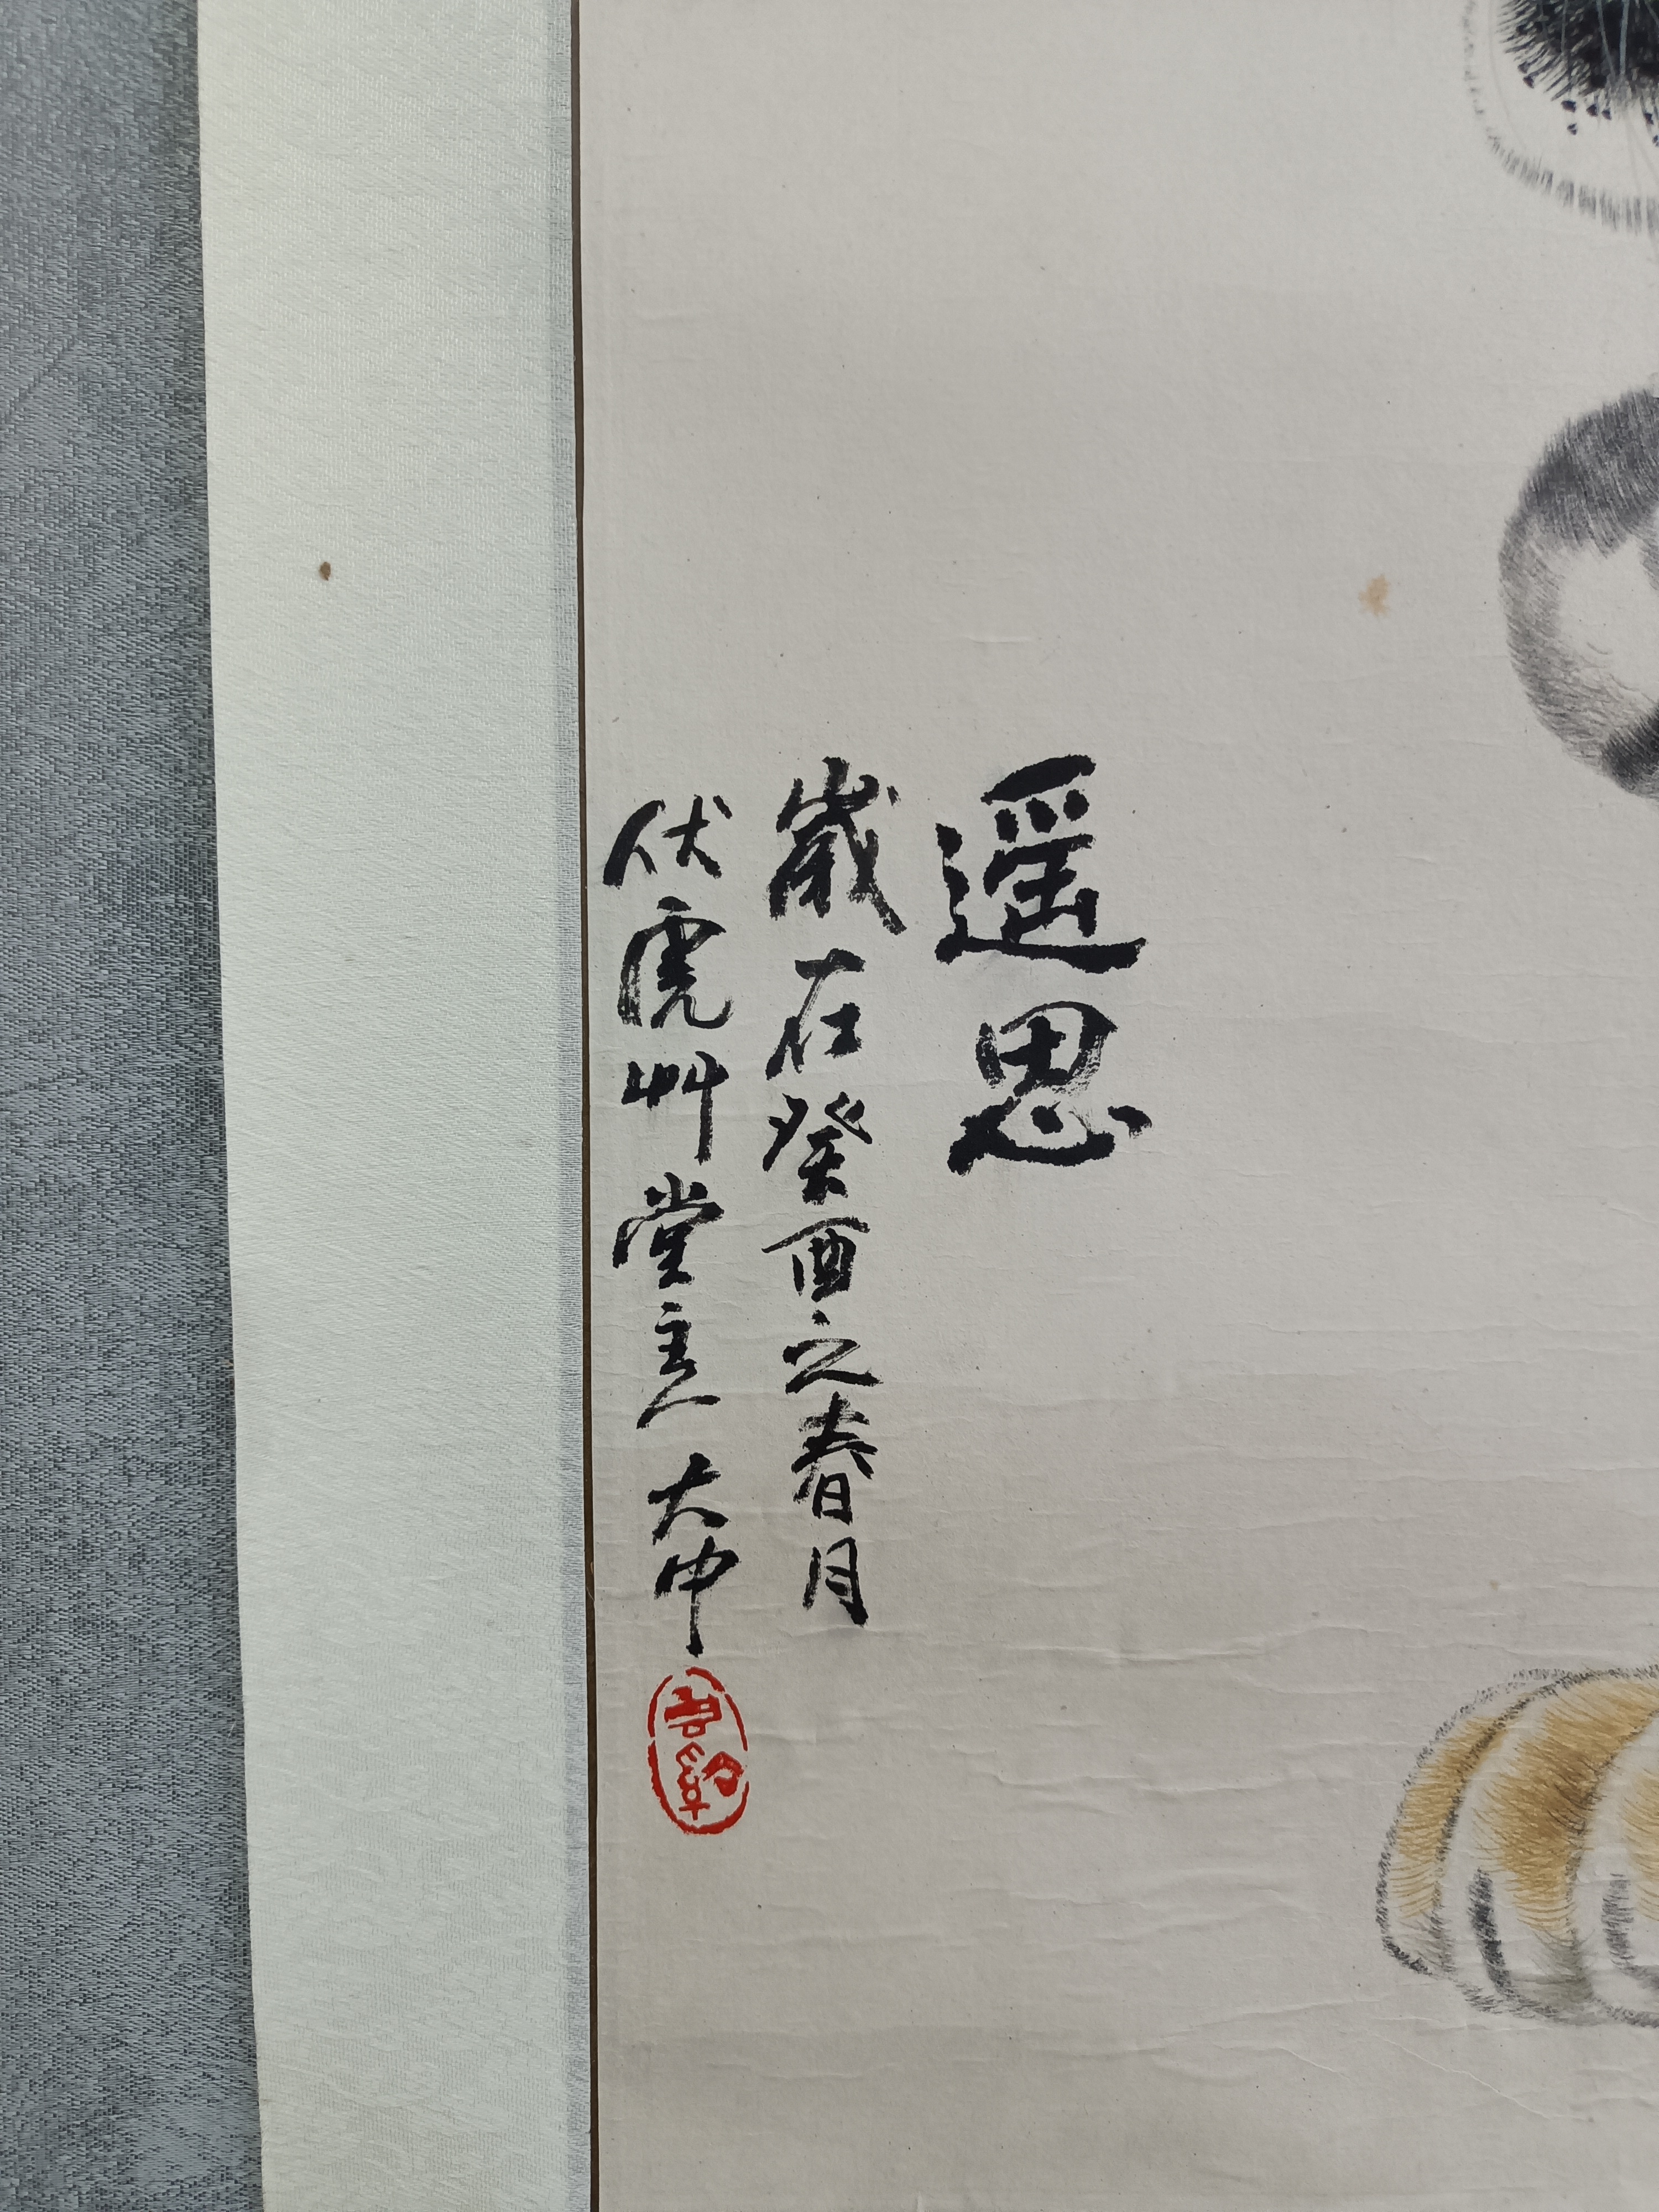 遥思
歲在癸酉之春月
伏虎艸堂主人大中